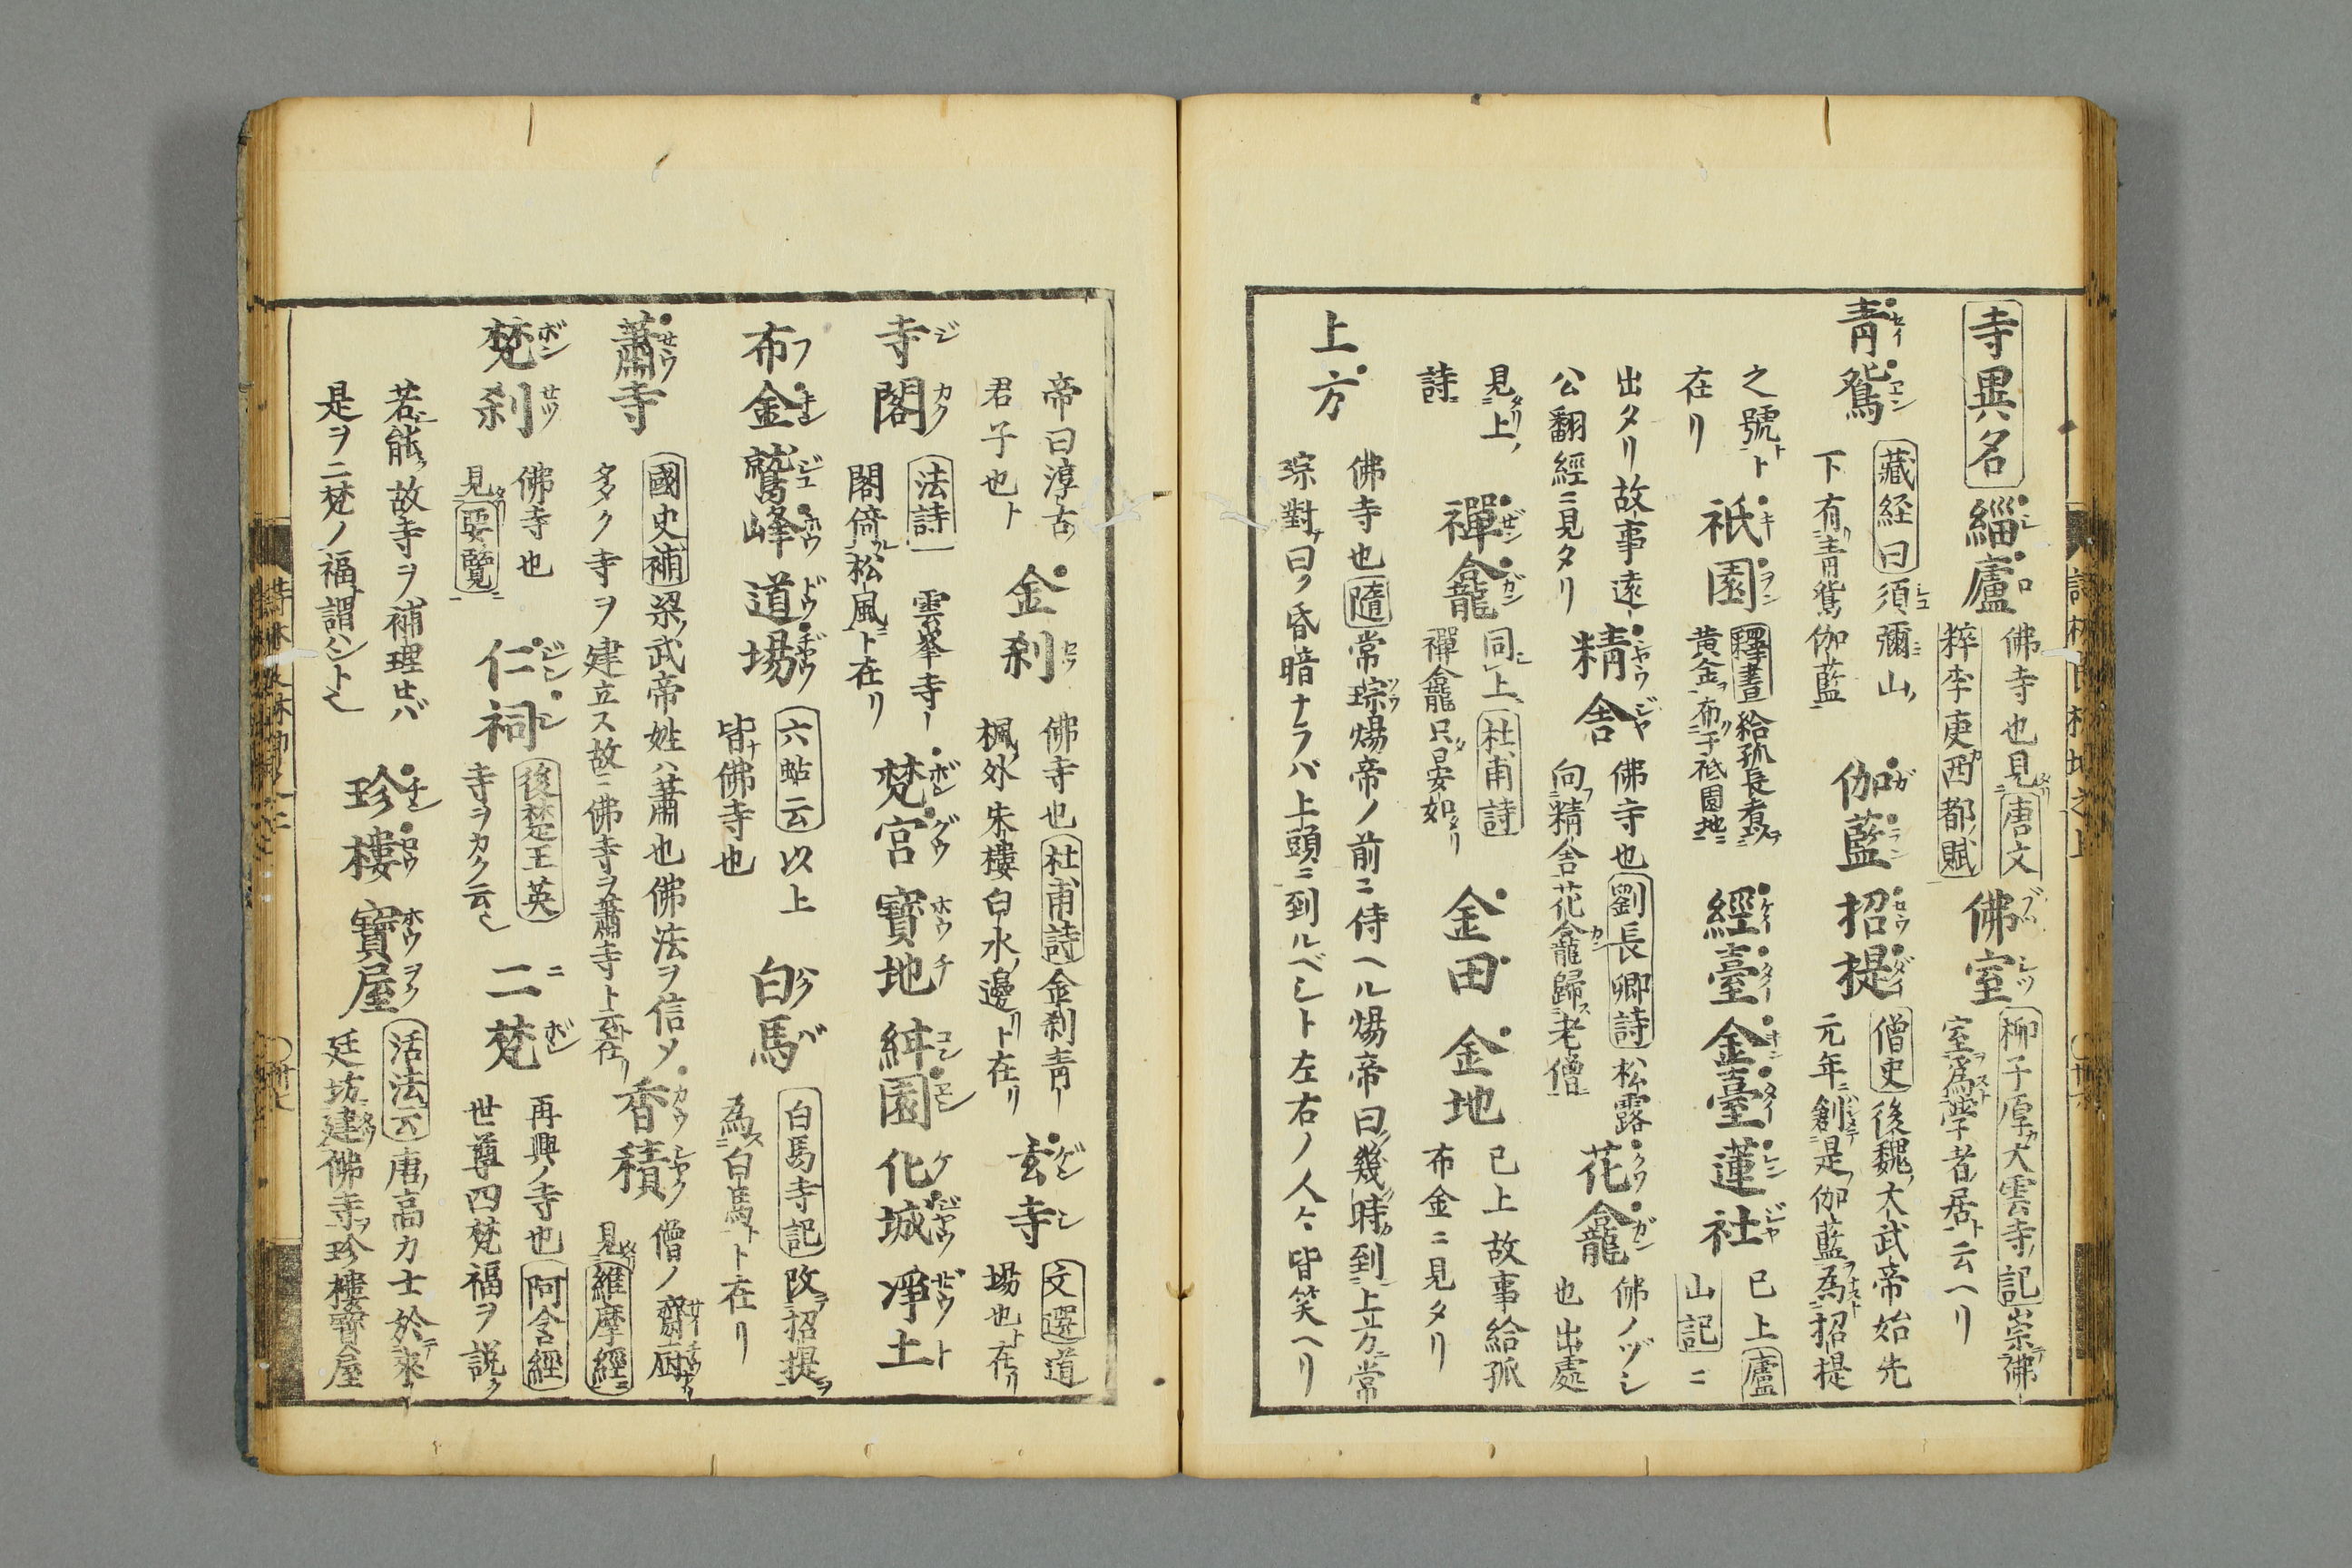 寺異名
緇廬
佛寺也見唐文
粹李庾西都賦
佛室
柳子厚大雲寺記崇佛
室為學者居ト云ヘリ
青鴛
藏経曰須彌山
下有青鴛伽藍
之號ト
在リ
伽藍
招提
僧史後魏太武帝始先
元年創是伽藍為招提
祇園
釋書給孤長者
黄金布于祇園地
經臺
金臺
蓮社
已上廬
山記ニ
出タリ故事遠
公翻經ニ見タリ
精舎
佛寺也劉長卿詩松露
向精舎花龕歸老僧
花龕
佛ノヅシ
也出處
見上
詩
禪龕
同上杜甫詩
禪龕只晏如
金田
金地
已上故事給孤
布金ニ見タリ
上方
佛寺也隨常琮煬帝ノ前ニ侍ヘル煬帝曰幾時到上方常
琮對曰ク昏暗ナラバ上頭ニ到ルベシト左右ノ人々皆笑ヘリ
帝曰淳古
君子也ト
金刹
佛寺也杜甫詩金刹青
楓外朱樓白水邊ト在リ
玄寺
文選道
場也ト在リ
寺閣
法詩雲峯寺
閣倚松風ト在リ
梵宮
寶地
紺園
化城
淨土
布金
鷲峰
道場
六帖云以上
皆佛寺也
白馬
白馬寺記改招提
為白馬ト在リ
蕭寺
國史補梁武帝姓ハ蕭也佛法ヲ信メ
多ク寺ヲ建立ス故ニ佛寺ヲ蕭寺ト云ト在リ
香積
僧ノ齋厨
見維摩經
梵刹
佛寺也
見要覽
仁祠
後楚王英
寺ヲカク云
二梵
再興ノ寺也阿含經
世尊四梵福ヲ説ク
若能故寺ヲ補理
是ヲ二梵ノ福ト謂
珍樓
寶屋
活法云唐高力士於來
廷坊建佛寺珍樓寶屋